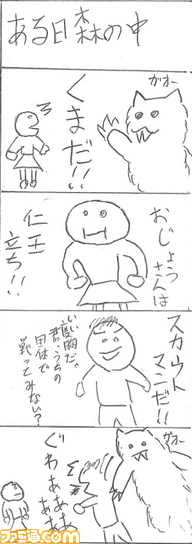 ある日森の中
ガオー
くまだ!!
おじょう
さんは
仁王
立ち!!
スカウト
マンだ!!
いい度胸だ。
君、うちの
団体で
戦ってみない?
ガオー
ぐわぁぁぁぁぁ
ファミ通.com